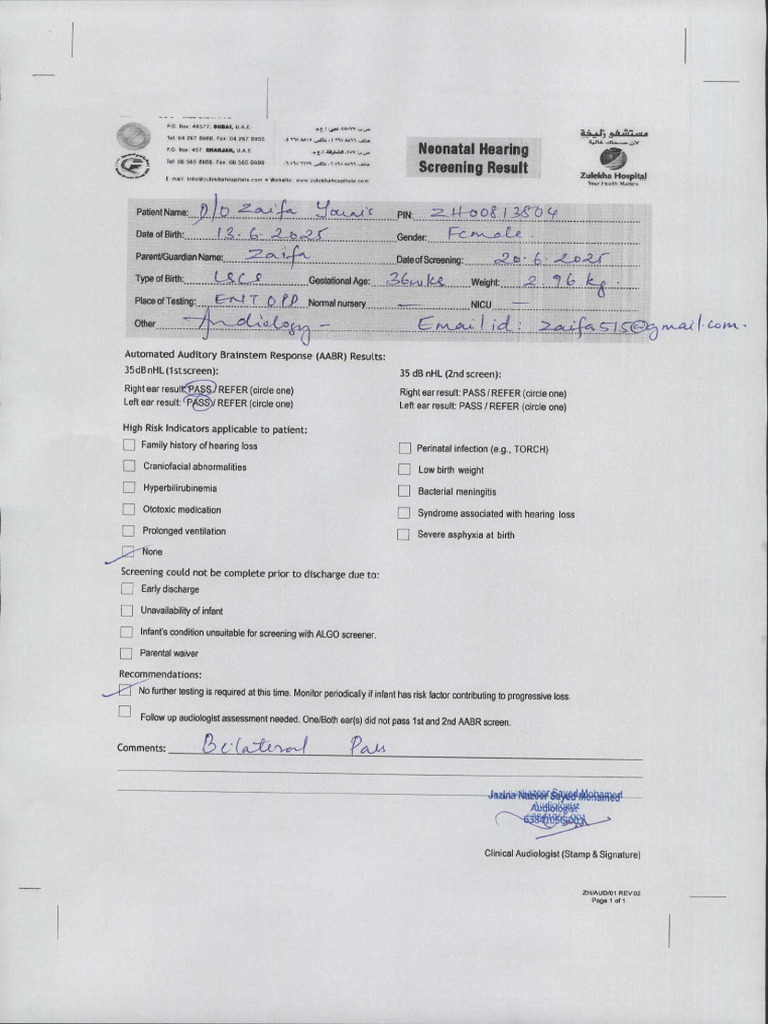 P.O. Box: 48577, DUBAI, U.A.E
Tel: 04 267 8866, Fax: 04 267 8855
P.O. Box: 457, SHARJAH, U.A.E
Tel: 06 565 8866, Fax: 06 565 8699
E-mail: info@zulekhahospitals.com • Website: www.zulekhahospitals.com
Neonatal Hearing
Screening Result
مستشفى زليخة
لأن صحتك غالية
Zulekha Hospital
Your Health Matters
Patient Name: D/O Zaifa Younis PIN: ZH00813804
Date of Birth: 13.6.2025 Gender: Female.
Parent/Guardian Name: Zaifa Date of Screening: 20.6.2025
Type of Birth: LSCS Gestational Age: 36wks Weight: 2.96 kg.
Place of Testing: ENT OPD Normal nursery — NICU —
Other Audiology - Email id: zaifa515@gmail.com.
Automated Auditory Brainstem Response (AABR) Results:
35 dB nHL (1st screen): 35 dB nHL (2nd screen):
Right ear result: PASS / REFER (circle one) Right ear result: PASS / REFER (circle one)
Left ear result: PASS / REFER (circle one) Left ear result: PASS / REFER (circle one)
High Risk Indicators applicable to patient:
Family history of hearing loss Perinatal infection (e.g., TORCH)
Craniofacial abnormalities Low birth weight
Hyperbilirubinemia Bacterial meningitis
Ototoxic medication Syndrome associated with hearing loss
Prolonged ventilation Severe asphyxia at birth
None
Screening could not be complete prior to discharge due to:
Early discharge
Unavailability of infant
Infant's condition unsuitable for screening with ALGO screener.
Parental waiver
Recommendations:
No further testing is required at this time. Monitor periodically if infant has risk factor contributing to progressive loss.
Follow up audiologist assessment needed. One/Both ear(s) did not pass 1st and 2nd AABR screen.
Comments: Bilateral Pass
Jazina Nazeer Sayed Mohamed
Audiologist
Clinical Audiologist (Stamp & Signature)
ZH/AUD/01 REV 02
Page 1 of 1